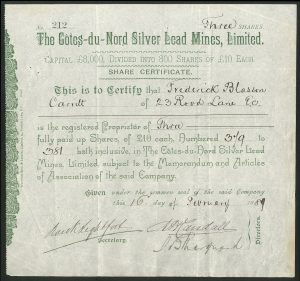 No. 212 Three SHARES.
The Côtes-du-Nord Silver Lead Mines, Limited.
CAPITAL £8,000, DIVIDED INTO 800 SHARES OF £10 EACH.
SHARE CERTIFICATE.
This is to Certify that Frederick Blossom
of 23 Rood Lane E.C.
is the registered Proprietor of Three
fully paid up Shares, of £10 each, Numbered 379 to
381 both inclusive, in The Côtes-du-Nord Silver Lead
Mines, Limited, subject to the Memorandum and Articles
of Association of the said Company.
Given under the common seal of the said Company
this 16 day of February 1889
Secretary.
Directors.